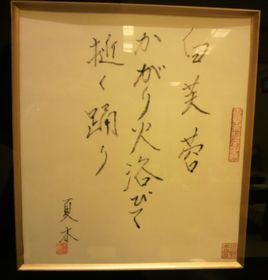 白芙蓉
かがり火浴びて
逝く踊り
夏木